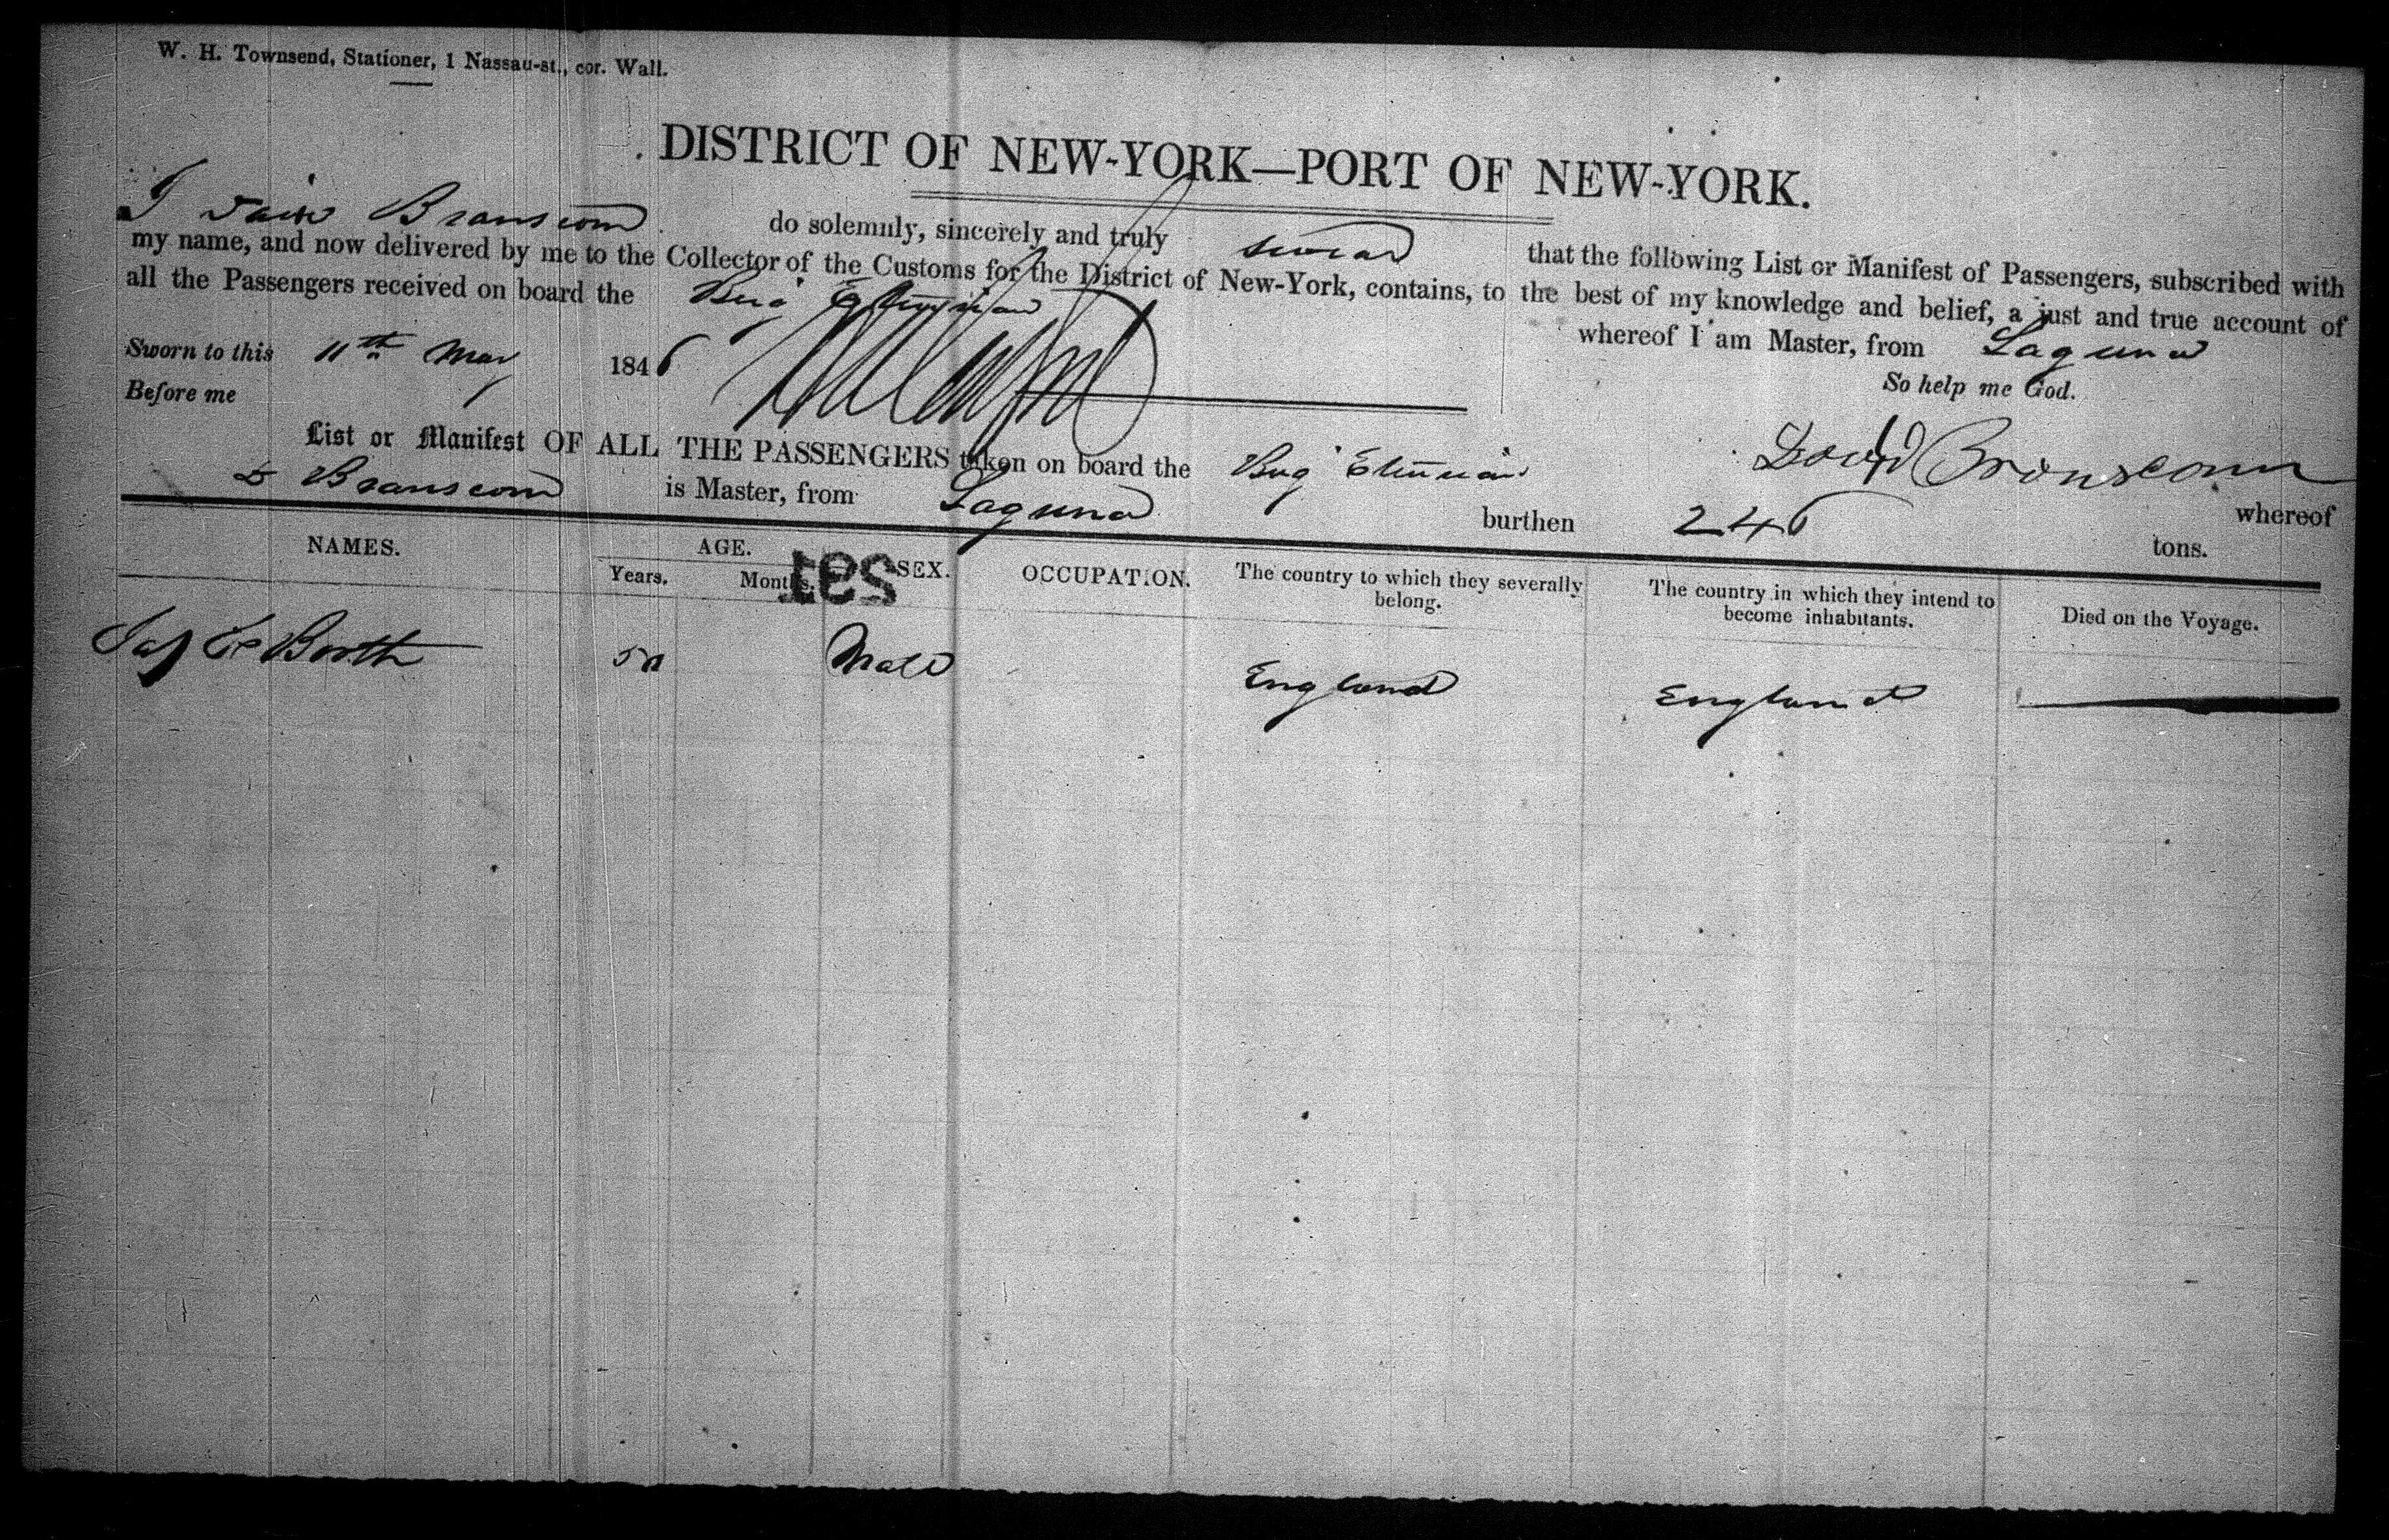 W. H. Townsend, Stationer, 1 Nassau-st., cor. Wall.
DISTRICT OF NEW-YORK—PORT OF NEW-YORK.
I David Branscom do solemnly, sincerely and truly swear that the following List or Manifest of Passengers, subscribed with
my name, and now delivered by me to the Collector of the Customs for the District of New-York, contains, to the best of my knowledge and belief, a just and true account of
all the Passengers received on board the Brig whereof I am Master, from Laguna
Sworn to this 11th May 1846 So help me God.
Before me
David Branscom
List or Manifest OF ALL THE PASSENGERS taken on board the Brig whereof
D Branscom is Master, from Laguna burthen 246 tons.
NAMES. AGE. SEX. OCCUPATION. The country to which they severally belong. The country in which they intend to become inhabitants. Died on the Voyage.
Years. Months.
291
Jas Booth 50 Male England England